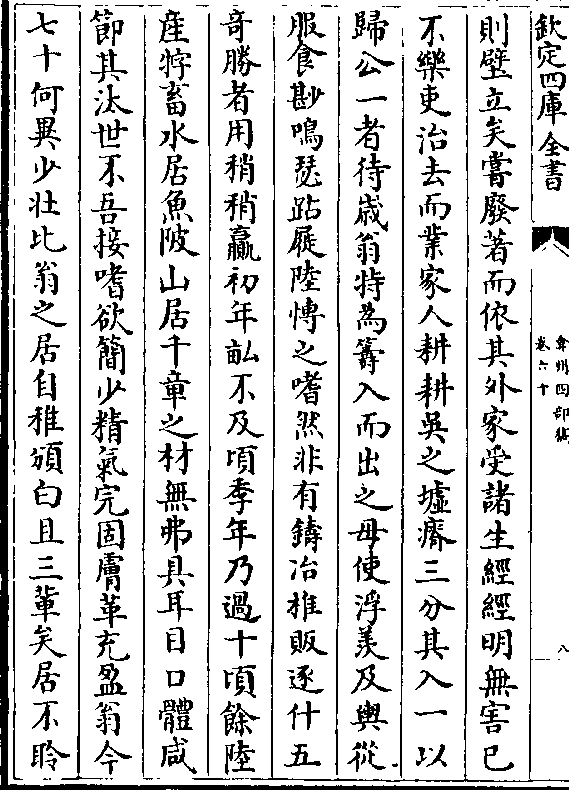 欽定四庫全書
弇州四部稿
卷六十
八
則壁立矣嘗廢著而依其外家受諸生經經明無害已
不樂吏治去而業家人耕耕吳之墟瘠三分其入一以
歸公一者待歲翁特為籌入而出之毋使浮羡及輿從
服食尠鳴瑟跕屣陸慱之嗜然非有鑄冶推販逐什五
奇勝者用稍稍贏初年畝不及頃季年乃過十頃餘陸
産牸畜水居魚陂山居千章之材無弗具耳目口體咸
節其汰世不吾接嗜欲簡少精氣完固膚革充盈翁今
七十何異少壯比翁之居自稚頒白且三輩矣居不聆